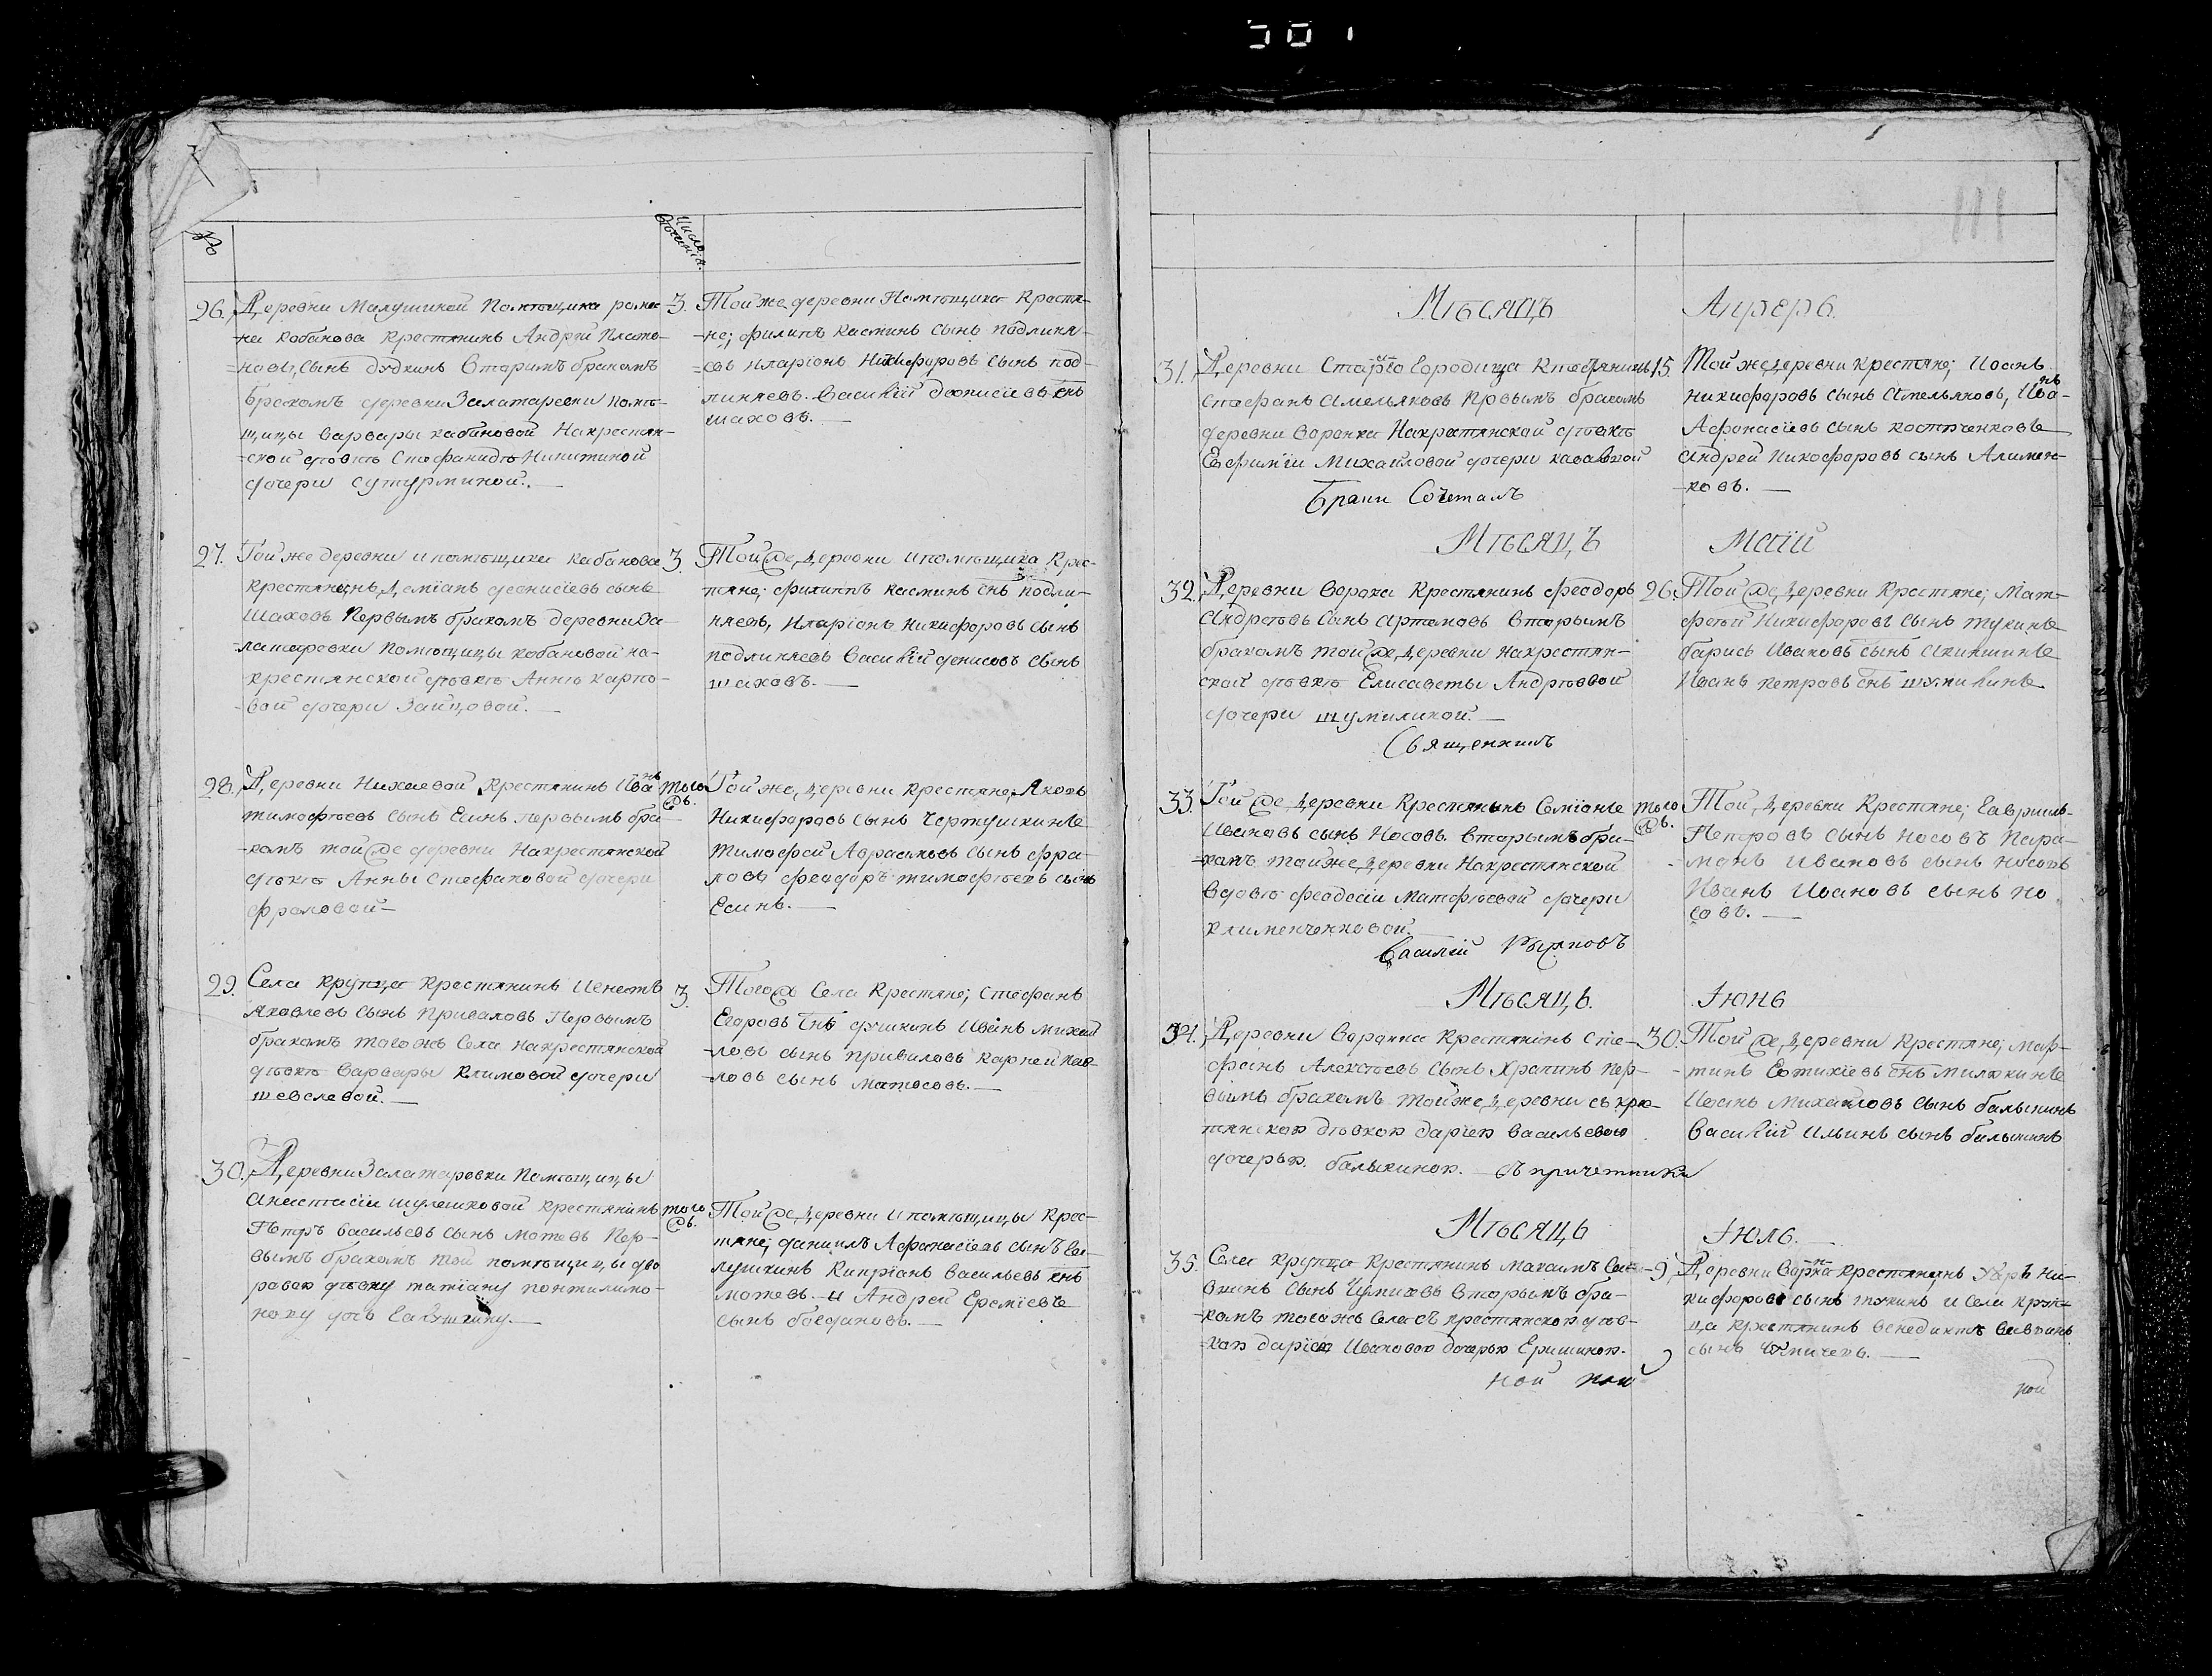 501
№
Число
26. Деревни Малушиной Помѣщика рома-
на Кабанова Крестянинъ Андрей Плато-
новъ сынъ дудкинъ вторимъ бракомъ
бракомъ деревни Залатаревки помѣ-
щицы варвары кабановой На крестян-
ской дѣвкѣ Стефанидѣ Никитиной
дочери сутурминой.
3. Той же деревни Помѣщика Крестя-
не; филипъ касминъ сынъ подлиня-
евъ иларіонъ Никифоровъ сынъ под-
линяевъ. василій дѣонисіевъ снъ
шаховъ.
27. Той же деревни и помѣщика Кабанова
Крестянинъ Деміанъ деонисіевъ сынъ
Шаховъ Первымъ бракомъ деревни За-
латаревки Помѣщицы кабановой на-
крестянской дѣвкѣ Аннѣ карпо-
вой дочери Зайцовой.
3. Той же Деревни и помѣщика Крес-
тяне; филиппъ касминъ снъ подли-
няевъ, Иларіонъ Никифоровъ сынъ
подлиняевъ василій денисовъ сынъ
шаховъ.
28. Деревни Нихаевой Крестянинъ Иванъ
тимофѣевъ сынъ Есинъ первымъ бра-
комъ той же деревни На крестянской
дѣвкѣ Анны стефановой дочери
фроловой
того жъ. Той же Деревни крестяне, Яковъ
Никифоровъ сынъ Чертушкинъ
Тимофей Аврамовъ сынъ фра-
ловъ феодоръ тимофѣевъ сынъ
Есинъ.
29. Села Крупца Крестянинъ Игнатъ
Яковлевъ сынъ Приваловъ Первымъ
бракомъ того жъ Села на крестянской
дѣвкѣ варвары Климовой дочери
шевелевой.
3. Того жъ Села Крестяне; Стефанъ
Егоровъ снъ душкинъ Иванъ михай-
ловъ сынъ приваловъ Карней пав-
ловъ сынъ Матосовъ.
30. Деревни Залатаревки Помѣщицы
Анастасіи шулешковой крестянинъ
Петръ васильевъ сынъ мотевъ Пер-
вымъ бракомъ той помѣщицы дво
ровою дѣвку татіану понтилимо-
нову дочь
того жъ. Той же Деревни и помѣщицы Крес-
тяне; данилъ Афанасіевъ сынъ Га-
лушкинъ Кипріанъ васильевъ снъ
мотевъ. и Андрей Еремѣевъ
сынъ богдановъ.
Мѣсяцъ Апрерь.
31. Деревни Стараго Городища Крестянинъ
стефанъ Амельяковъ Првымъ бракомъ
деревни воронка На крестянской дѣвкѣ
Евфиміи Михаиловой дочери
15. Той же Деревни крестяне; Иоанъ
никифоровъ сынъ Амельяковъ, Иванъ
Афонасіевъ сынъ костюченковъ
андрей Никофоровъ сынъ Алимен-
ковъ.
Браки Сочеталъ
Мѣсяцъ Маій
32. Деревни ворока Крестянинъ феодоръ
Андрѣевъ сынъ артамовъ вторымъ
бракомъ той же деревни на крестян-
ской дѣвкѣ Елисаветы Андрѣевой
дочери шумилиной.
26. Той же деревни Крестяне; Мат-
фѣй Никифоровъ сынъ тукинъ
барисъ Ивановъ сынъ Акишинъ
Иванъ петровъ снъ шумилинъ
Священникъ
33. Той же деревни Крестянинъ Семіонъ
Ивановъ сынъ Носовъ. вторымъ бра-
комъ той же Деревни На крестянской
вдовѣ феодосіи Матфѣевой дочери
клименченковой.
того жъ. Той Деревни Крестяне; Гаврилъ
Петровъ сынъ носовъ Пара-
монъ Ивановъ сынъ Носовъ
Иванъ Ивановъ сынъ но
совъ.
Василій Рыжковъ
Мѣсяцъ. Іюнь
34. Деревни Воронка Крестянинъ Сте-
фанъ Алексѣевъ сынъ Храпинъ пер-
вымъ бракомъ той же Деревни съ кре-
тянскою дѣвкою даріею васильевою
дочерью балыкиною. съ причетники
30. Той же Деревни Крестяне; Мар-
тинъ Евтихіевъ снъ милюкинъ
Иванъ Михаиловъ сынъ балыкинъ
василій Ильинъ сынъ балыкинъ
Мѣсяцъ Іюль.
35. Села Крупца Крестянинъ Маѯимъ Сав-
винъ сынъ вторымъ бра-
комъ того жъ Села съ крестянскою дѣв-
кою даріею Ивановою дочерью Еришиною.
ной ной
9. Деревни Воронка крестянинъ Уаръ Ни-
кифоровъ сынъ тукинъ и Села круп-
ца крестянинъ венедиктъ савинъ
сынъ
ной